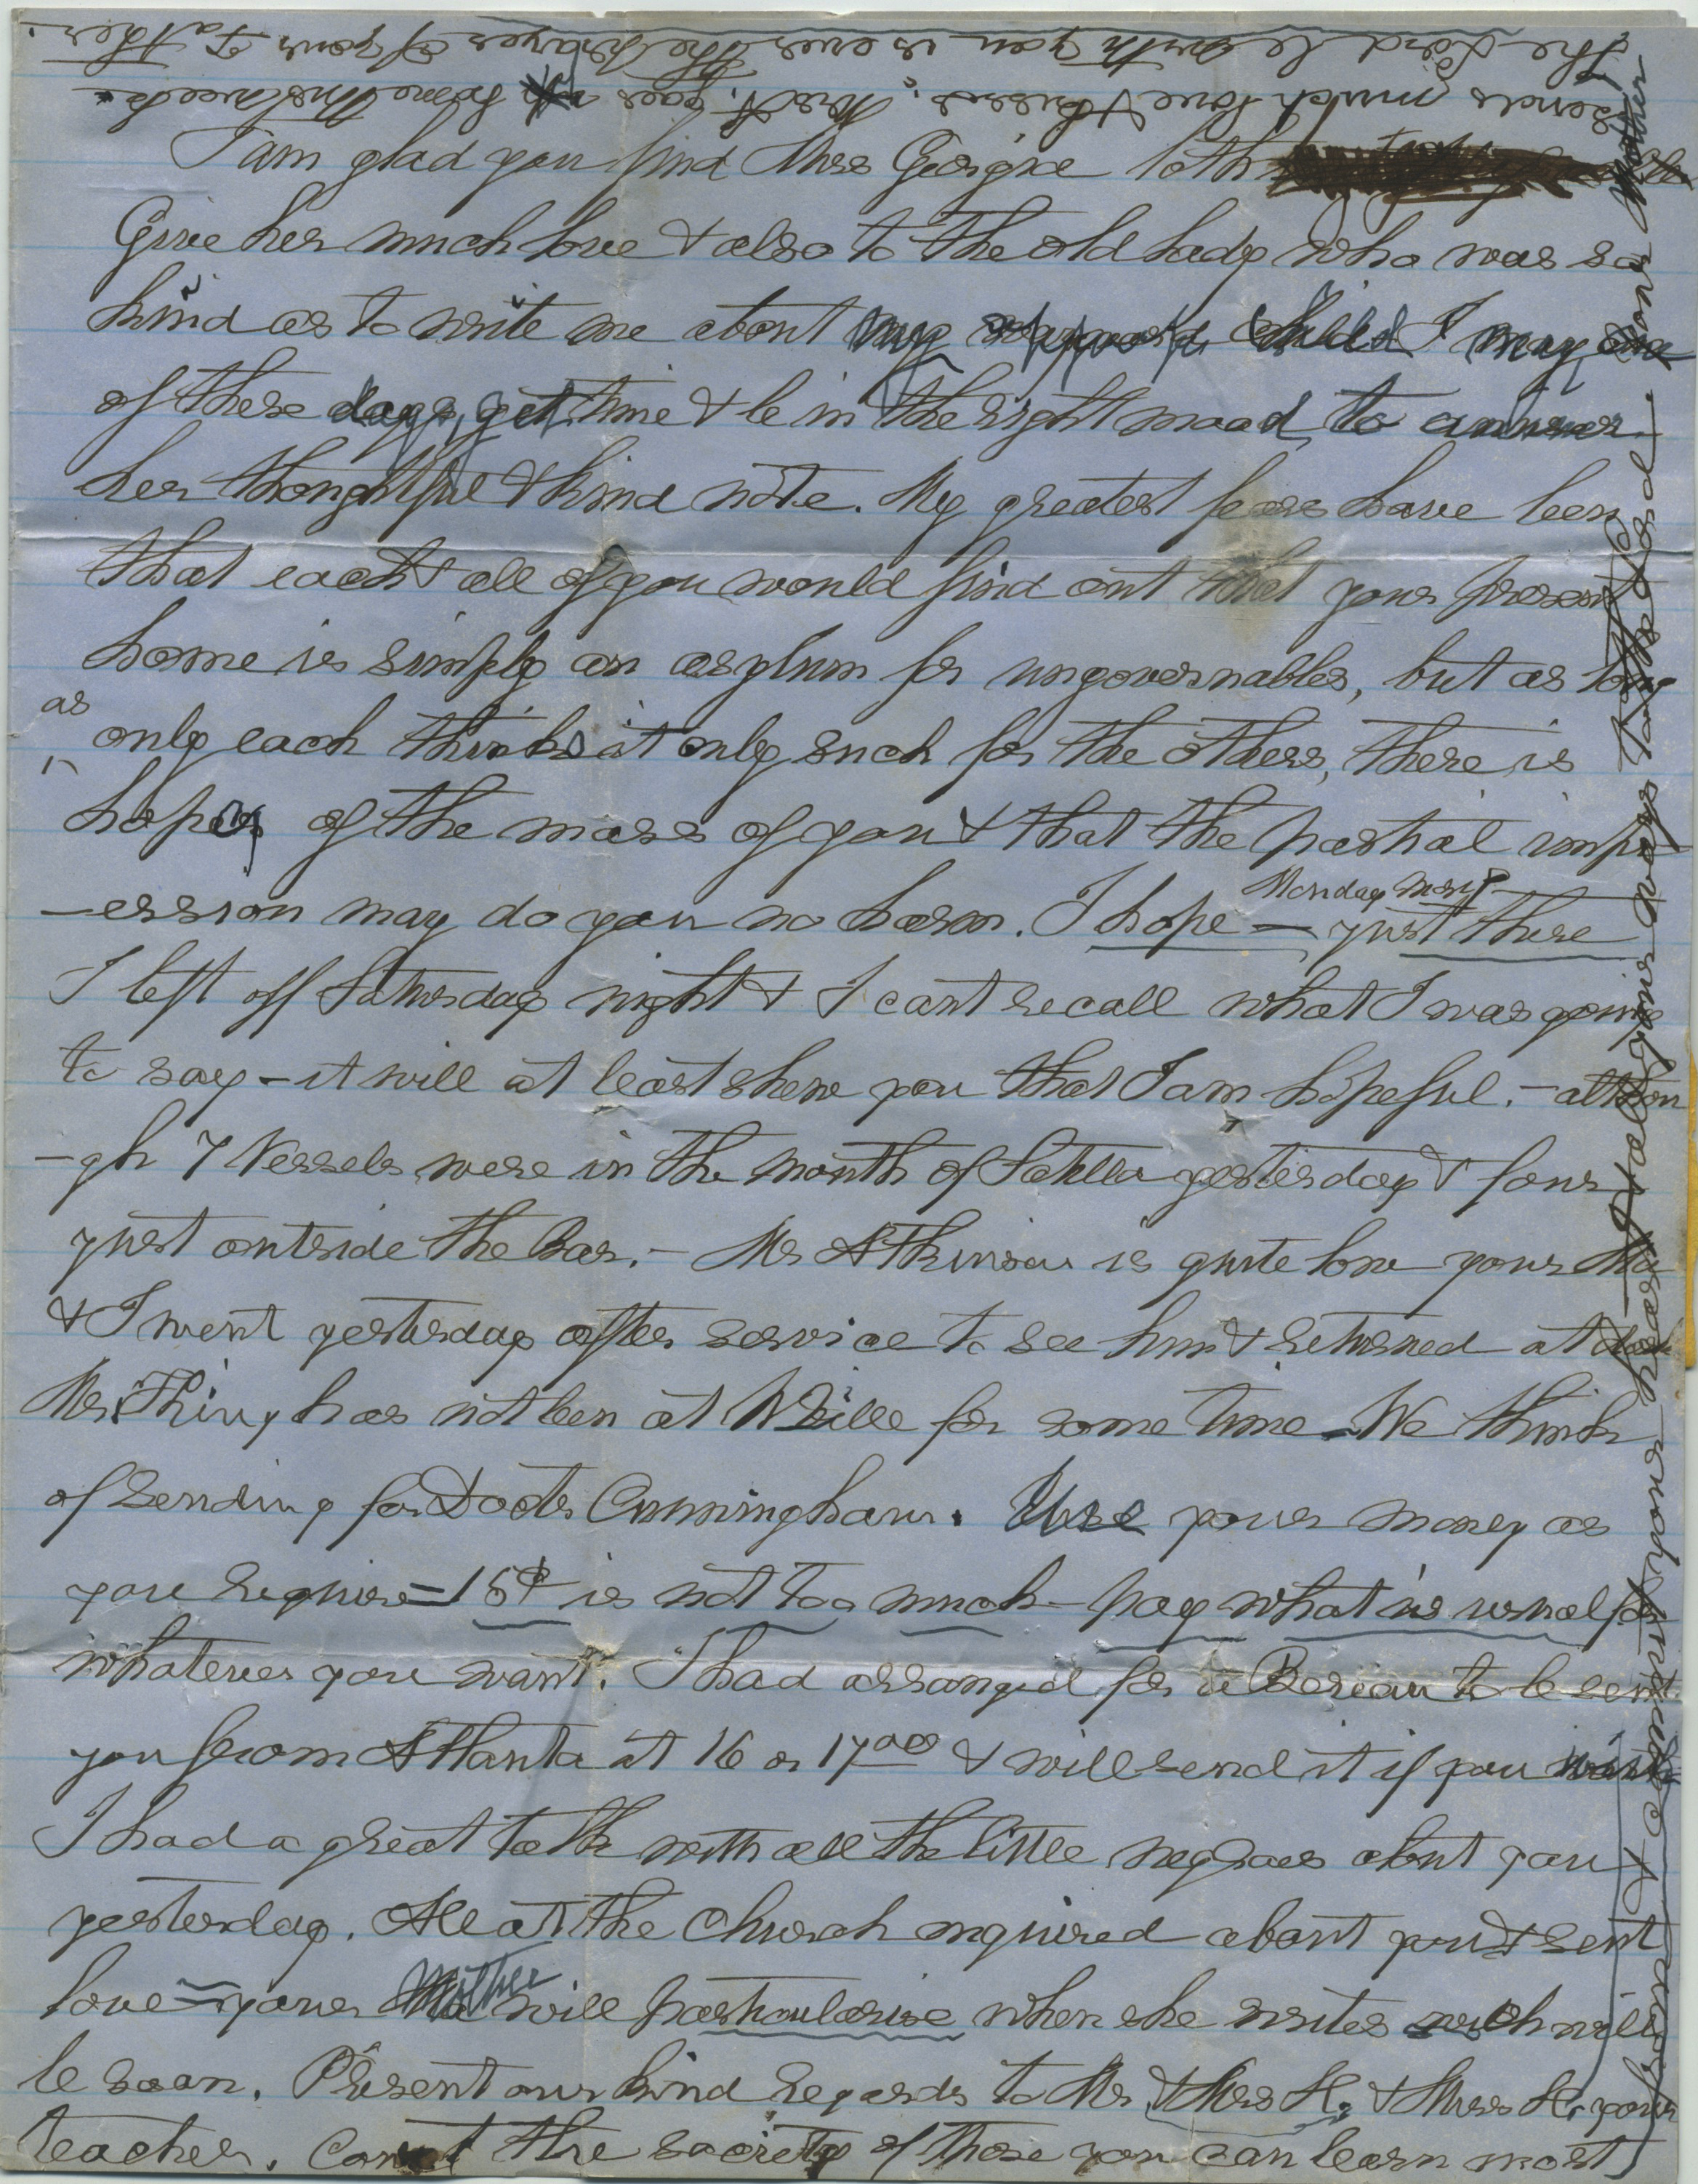 I am glad you find Miss Georgia both
Give her much love & also to the old lady who was so
kind as to write me about my wayward child I may one
of these days, get time & be in the right mood to answer
her thoughtful & kind note. My greatest fears have been
that each & all of you would find out that your present
home is simply an asylum for ungovernables, but as long
as
only each thinks it only such for the others, there is
hope of the mass of you & that the partial impr
-ession may do you no harm. I hope — just there
Monday morng
I left off Saturday night & I cant recall what I was going
to say – it will at least shew you that I am hopeful. – althou
-gh 7 Vessels were in the mouth of Satilla yesterday & four
just outside the Bar. – Mr Atkinson is quite low your Ma
& I went yesterday after service to see him & returned at dark
Mr. King has not been at WVille for some time – We think
of sending for Doctr Cunningham. Use your money as
you require – 15$ is not too much – pay what is usual for
whatever you want. I had arranged for a Bureau to be sent
you from Atlanta at 16 or 17.00 & will send it if you wish
I had a great talk with all the little negroes about you
yesterday. All at the Church inquired about you & sent
love – your Mother will particularise when she writes which will
be soon. Present our kind regards to Mr & Mrs H. & Miss H. your
teacher. Court the society of those you can learn most
from & commit your heart & all your ways to the Lord – your Mother
sends much love & kisses. West. goes home this week.
The Lord be with you is ever the prayer of your Father.